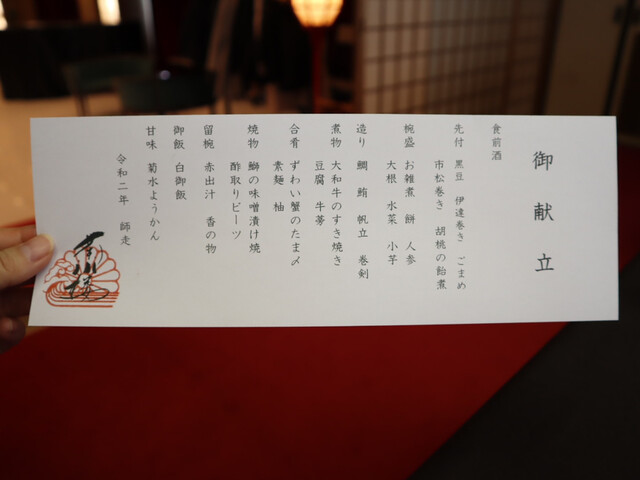 御献立
食前酒
先付 黒豆 伊達巻き ごまめ
市松巻き 胡桃の飴煮
椀盛 お雑煮 餅 人参
大根 水菜 小芋
造り 鯛 鮪 帆立 巻剣
煮物 大和牛のすき焼き
豆腐 牛蒡
合肴 ずわい蟹のたま〆
素麺 柚
焼物 鰤の味噌漬け焼
酢取りビーツ
留椀 赤出汁 香の物
御飯 白御飯
甘味 菊水ようかん
令和二年 師走